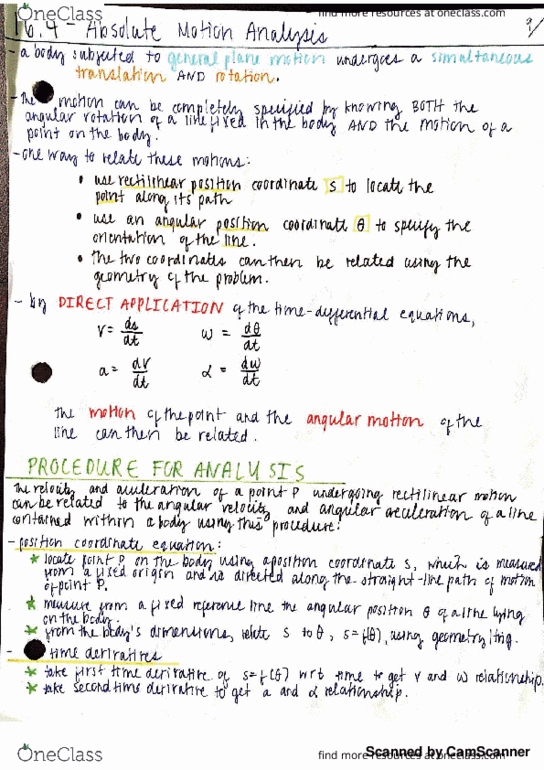 OneClass find more resources at oneclass.com
16.4 - Absolute Motion Analysis 9/
- a body subjected to general plane motion undergoes a simultaneous
translation AND rotation.
- The motion can be completely specified by knowing BOTH the
angular rotation of a line fixed in the body AND the motion of a
point on the body.
- one way to relate these motions:
• use rectilinear position coordinate s to locate the
point along its path
• use an angular position coordinate θ to specify the
orientation of the line.
• The two coordinates can then be related using the
geometry of the problem.
- by DIRECT APPLICATION of the time-differential equations,
v = ds/dt ω = dθ/dt
a = dv/dt α = dω/dt
the motion of the point and the angular motion of the
line can then be related.
PROCEDURE FOR ANALYSIS
The velocity and acceleration of a point P undergoing rectilinear motion
can be related to the angular velocity and angular acceleration of a line
contained within a body using this procedure:
- position coordinate equation:
* locate point P on the body using a position coordinate s, which is measured
from a fixed origin and is directed along the straight-line path of motion
of point P.
* measure from a fixed reference line the angular position θ of a line lying
on the body.
* from the body's dimensions, relate s to θ, s=f(θ), using geometry/trig.
- time derivatives
* take first time derivative of s=f(θ) wrt time to get v and ω relationship.
* take second time derivative to get a and α relationship.
OneClass find more resources at oneclass.com
Scanned by CamScanner